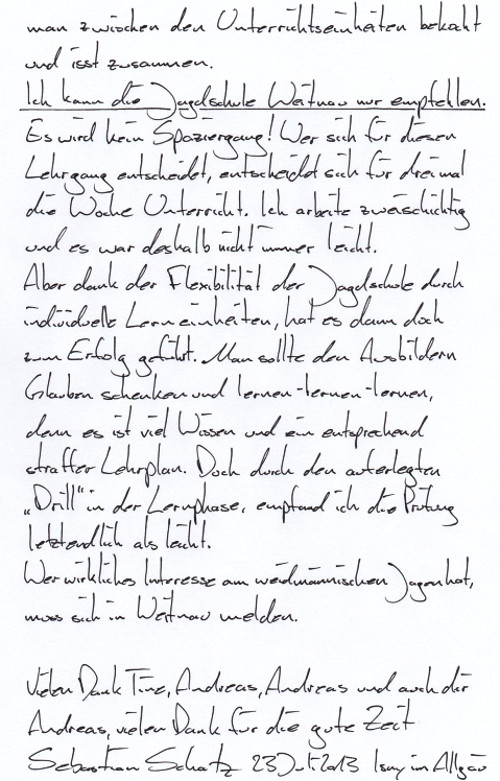 man zwischen den Unterrichtseinheiten bekocht
und isst zusammen.
Ich kann die Jagdschule Weitnau nur empfehlen.
Es wird kein Spaziergang! Wer sich für diesen
Lehrgang entscheidet, entscheidet sich für dreimal
die Woche Unterricht. Ich arbeite zweischichtig
und es war deshalb nicht immer leicht.
Aber dank der Flexibilität der Jagdschule durch
individuelle Lerneinheiten, hat es dann doch
zum Erfolg geführt. Man sollte den Ausbildern
Glauben schenken und lernen-lernen-lernen,
denn es ist viel Wissen und ein entsprechend
straffer Lehrplan. Doch durch den auferlegten
„Drill" in der Lernphase, empfand ich die Prüfung
letztendlich als leicht.
Wer wirkliches Interesse am weidmännischen Jagen hat,
muss sich in Weitnau melden.
Vielen Dank Tine, Andreas, Andreas und auch dir
Andreas, vielen Dank für die gute Zeit
Sebastian Schatz 23 Juli 2013 Isny im Allgäu